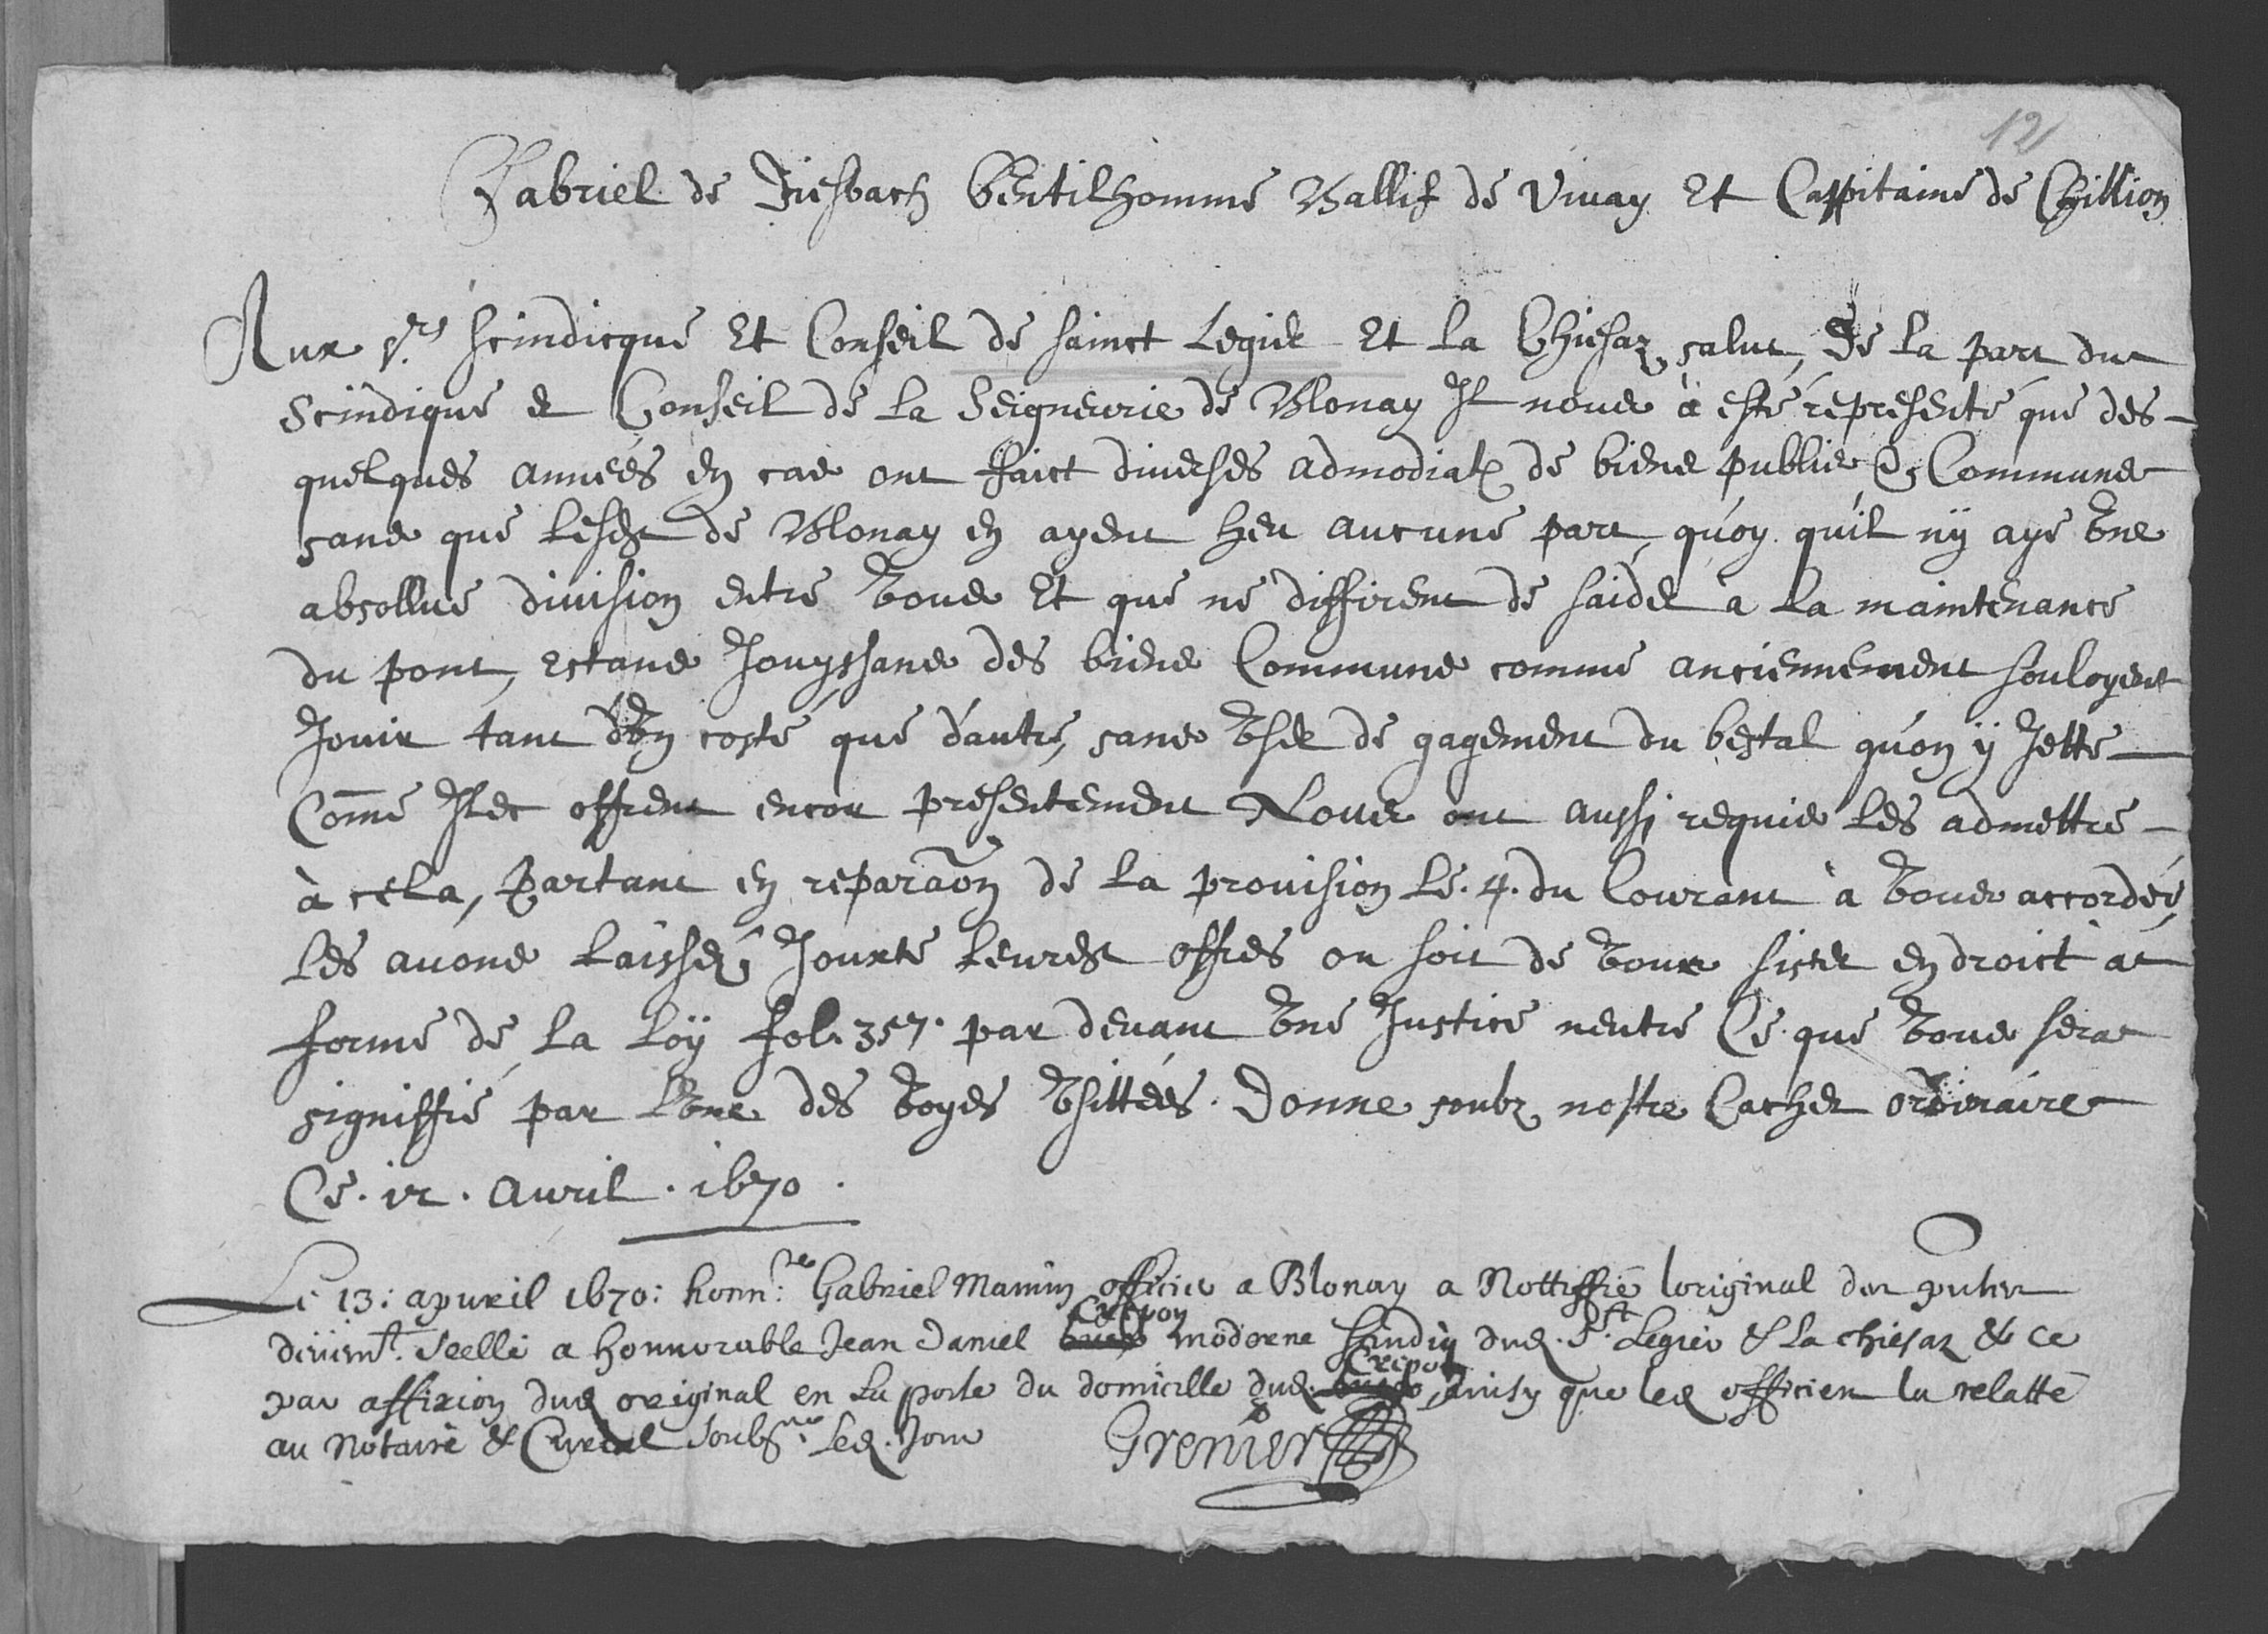 12
Gabriel de Diesbach Gentilhomme Ballif de Vivay Et Cappitaine de Chillion
Aux Srs Scindicque Et Conseil de Sainct Legier Et La Chiesaz, salut, De La part du
Scindique et Conseil de La Seigneurie de Blonay Il nous à esté representé que des
quelques années en cas ont faict diverses admodiat~ de biens publics & Communs
sans que Lesdt de Blonay en ayent heu aucune part, quoy qu'il ny aye Une
absollue division entre Vous Et que ne different de saider à La maintenance
du pont, estans Jouyssans des biens Communs comme anciennement souloyent
Jouir tant dUn costé que d'autre, sans User de gagement du bestal qu'on ÿ Jette
Come Ils offrent encor presentement Nous ont aussi requis les admettre
à cela, Partant en reparaon de La provision Le .4. du Courant à Vous accordée,
Les avons Laissez Jouxte Leursdt offres ou soit de Vous sister en droict à
forme de La Loÿ fol. 357. par devant Une Justice neutre Ce que Vous sera
signiffié par Lune des Voyes Usittées. Donne soubz nostre Cachet ordinaire
Ce . 12 . Avril . 1670 .
Le 13: apvril 1670: honn:le Gabriel Mamin officier a Blonay a Nottiffié loriginal du
deuemt. Seellé a honnorable Jean Daniel Crepon moderne Sindiq dud. St. Legier & La Chiesaz & ce
par affixion dud original en La porte du domicille dud. Crepon, ainsy que led officier la relatté
au Notaire & Curial Soubsne: Led. Jour Grenier